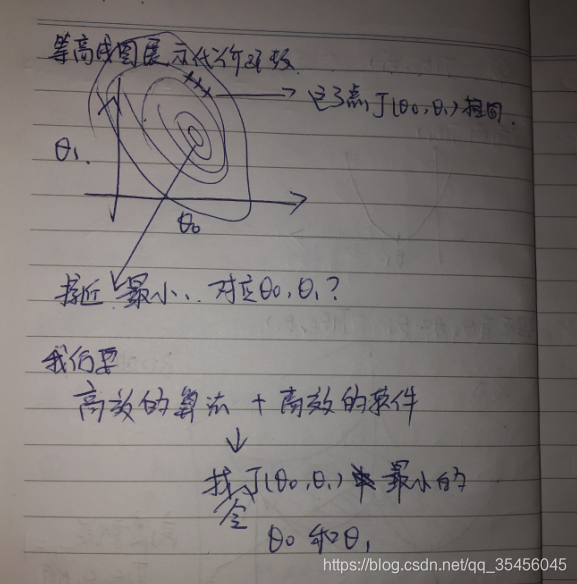 等高线图展示代价函数
这3点J(θ0,θ1)相同.
θ1
θ0
接近最小.. 对应θ0,θ1?
我们要
高效的算法 + 高效的软件
找J(θ0,θ1) 最小的
令
θ0 和θ1
https://blog.csdn.net/qq_35456045